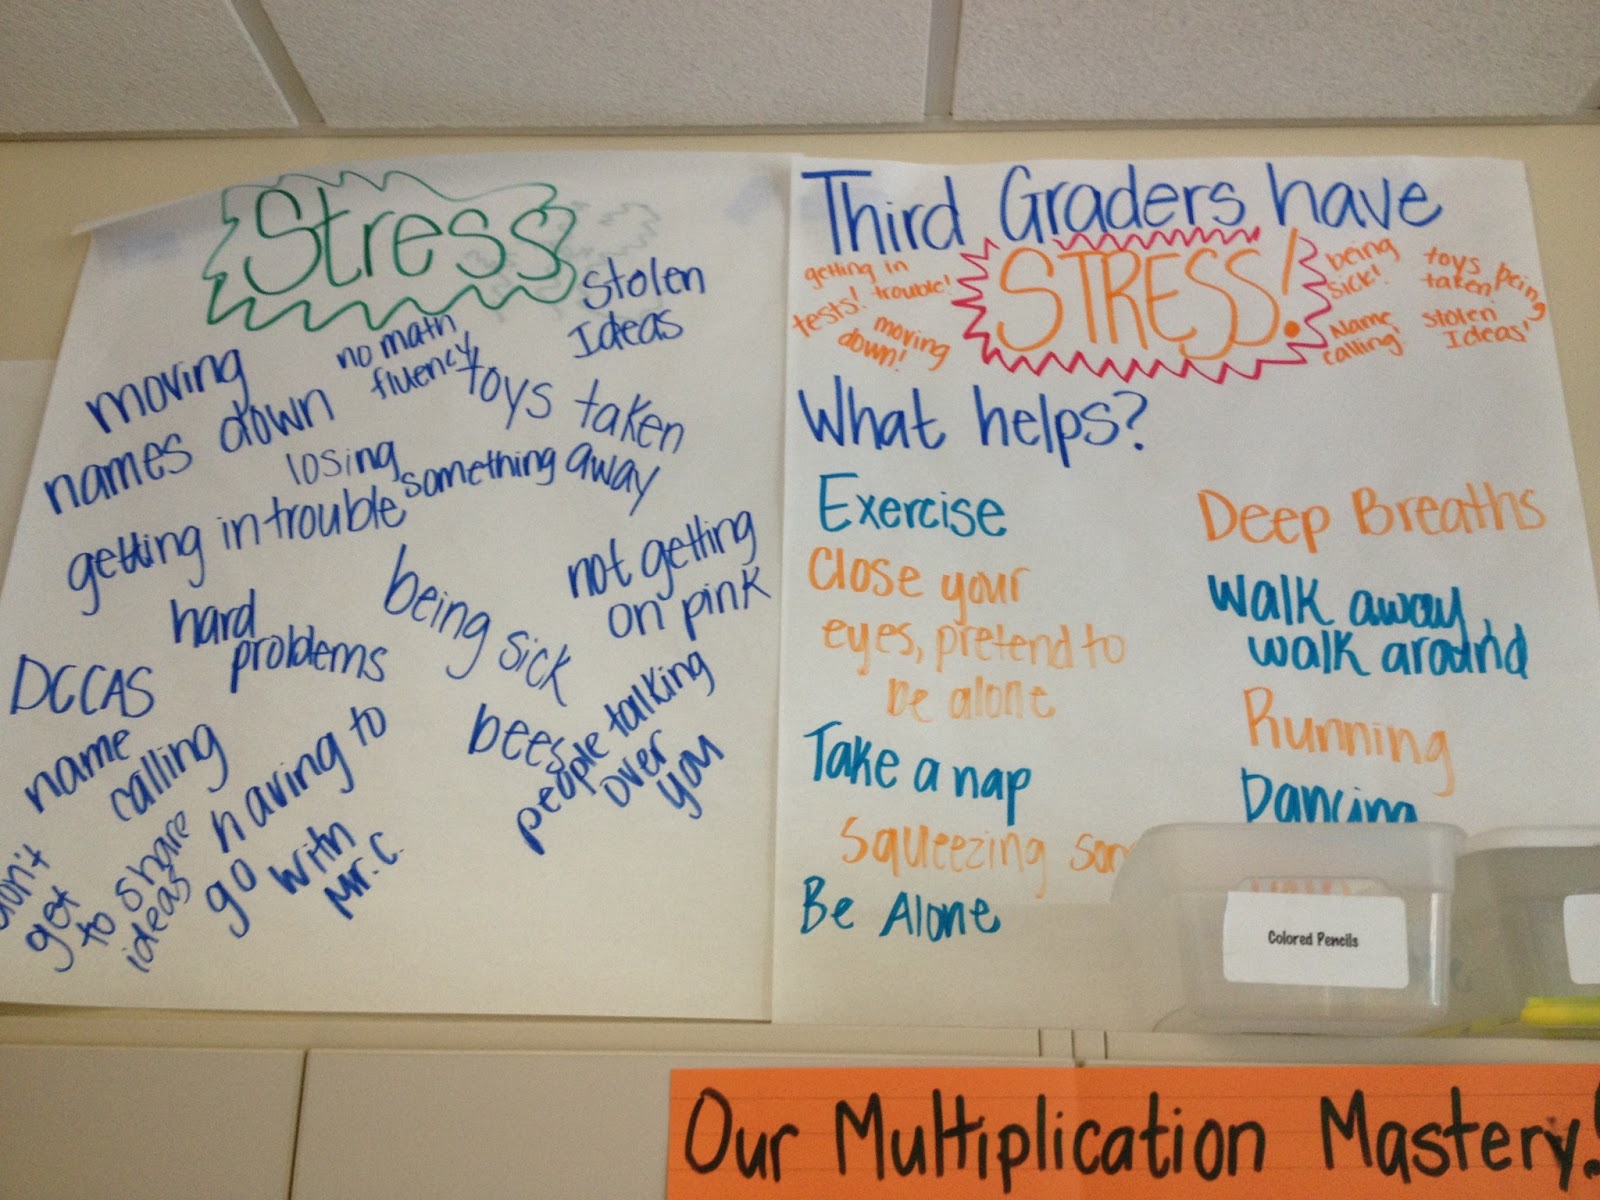 Stress
stolen
Ideas
no math
fluency
moving
names down
toys taken
losing
something away
getting in trouble
not getting
on pink
being sick
hard
problems
DCCAS
name
calling
bees
people talking
over
you
having to
go with
Mr. C.
don't
get
to share
ideas
Third Graders have
STRESS!
getting in
trouble!
tests!
moving
down!
being
sick!
toys being
taken!
Name
calling
stolen
Ideas!
What helps?
Exercise
Close your
eyes, pretend to
be alone
Take a nap
Squeezing
Be Alone
Deep Breaths
Walk away,
walk around
Running
Dancing
Colored Pencils
Our Multiplication Mastery!